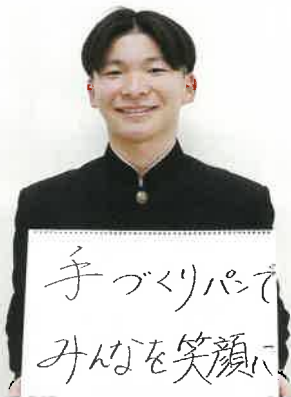 手づくりパンで
みんなを笑顔に